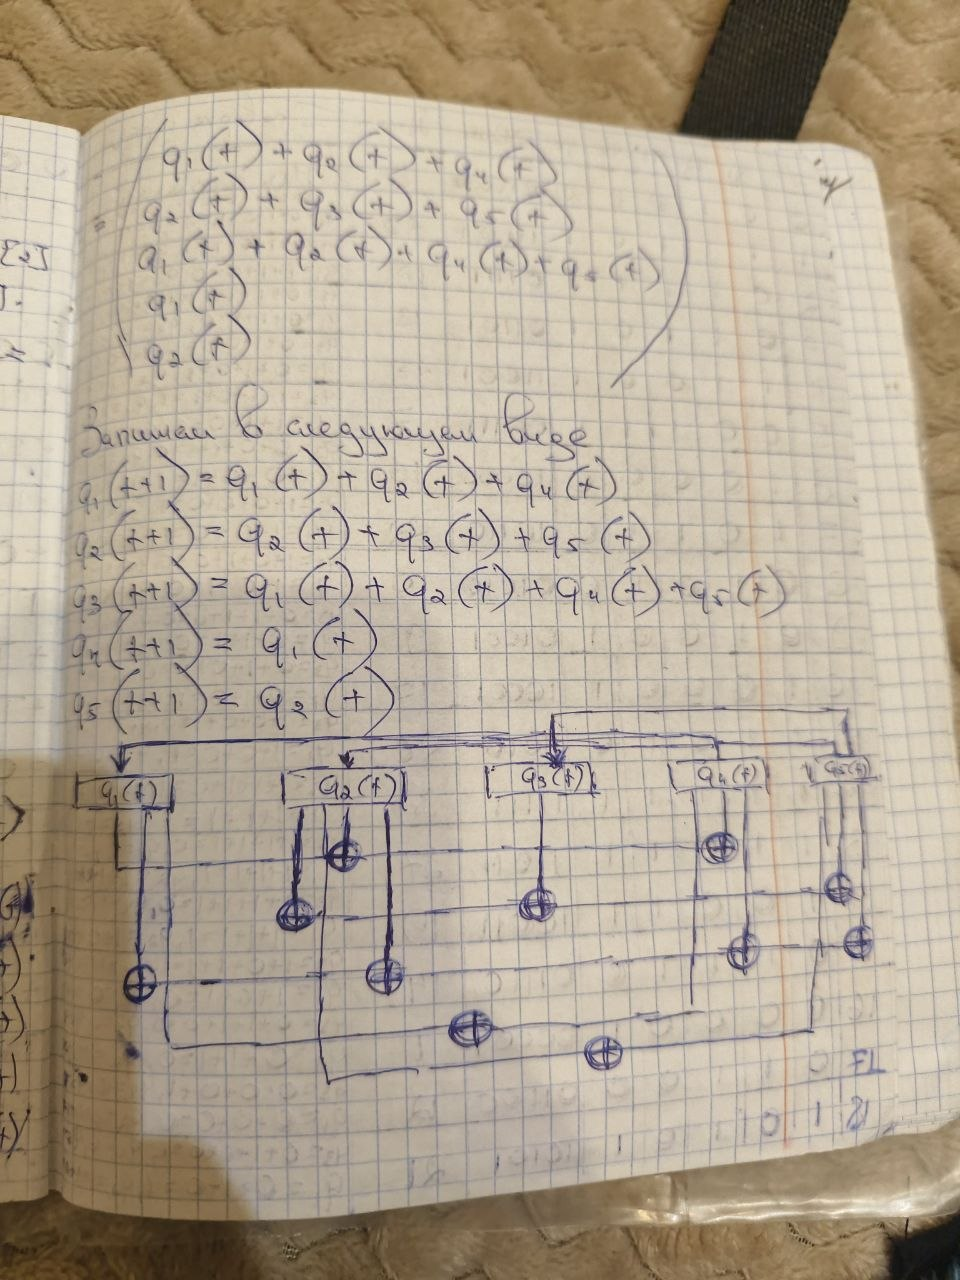 [2]
=
q₁(t) + q₂(t) + q₄(t)
= q₂(t) + q₃(t) + q₅(t)
q₁(t) + q₂(t) + q₄(t) + q₅(t)
q₁(t)
q₂(t)
Запишем в следующем виде
q₁(t+1) = q₁(t) + q₂(t) + q₄(t)
q₂(t+1) = q₂(t) + q₃(t) + q₅(t)
q₃(t+1) = q₁(t) + q₂(t) + q₄(t) + q₅(t)
q₄(t+1) = q₁(t)
q₅(t+1) = q₂(t)
q₁(t) q₂(t) q₃(t) q₄(t) q₅(t)